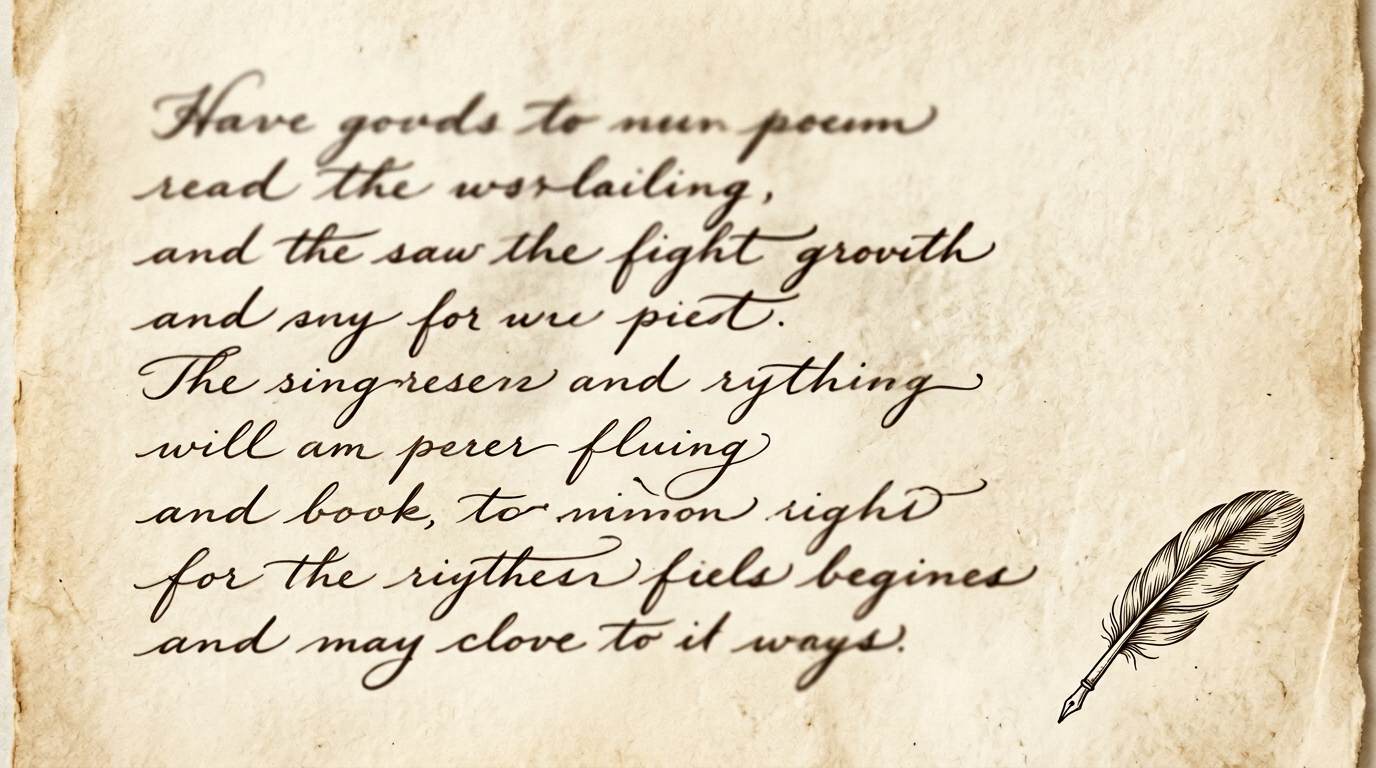 Have goods to nun poeum
read the wsrlailing,
and the saw the fight grovith
and sny for wre piest.
The singresen and rything
will am perer fluing
and book, to nimon right
for the riythesn fiels begines
and may clove to it ways.